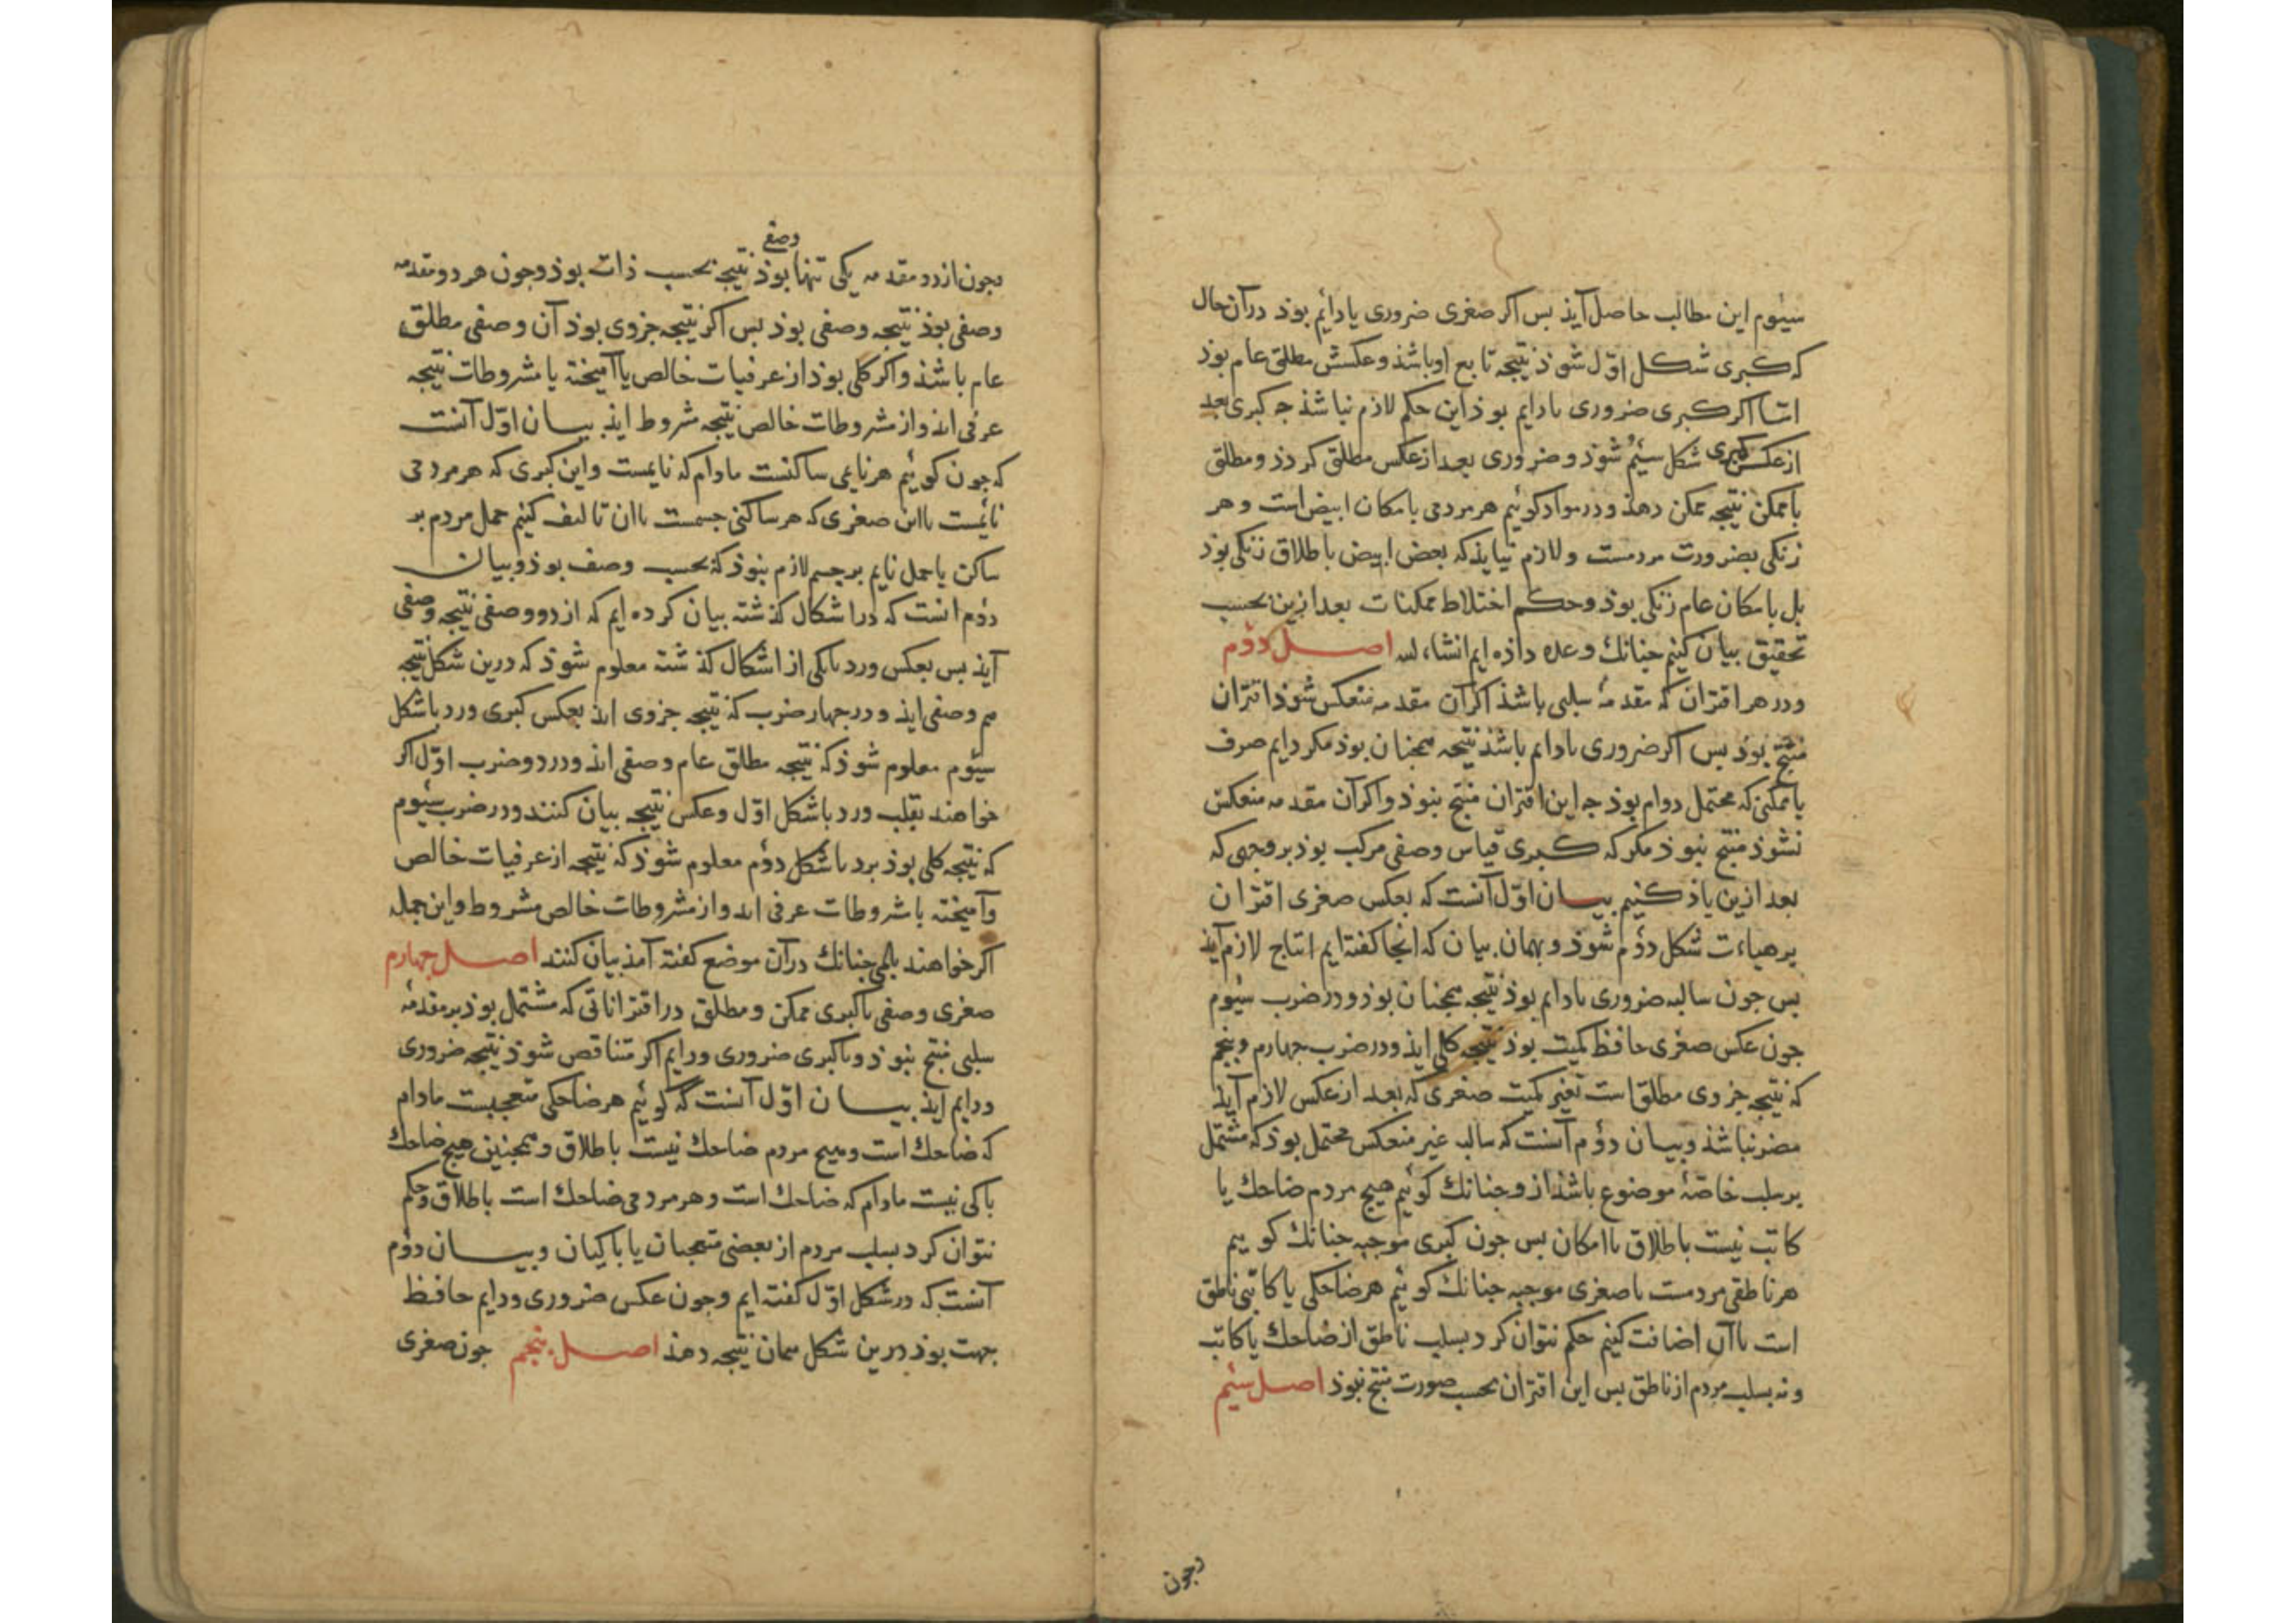 سیوم این مطالب حاصل آیذ بس اکر صغری ضروری یا دایٔم بوذ درآن حال
که کبری شکل اوّل شوذ نتیجه تابع او باشذ و عکسش مطلق عام بوذ
امّا اکر کبری ضروری یا دایم بوذ این حکم لازم نباشذ جه کبری بعد
از عکس کبری شکل سیٔم شوذ و ضروری بعد از عکس مطلق کردذ و مطلق
با ممکن نتیجه ممکن دهذ و در مواد کوئیم هر مردمی بامکان ابیض است و هر
زنکی بضرورت مردمست و لازم نیایذ که بعض ابیض باطلاق زنکی بوذ
بل بامکان عام زنکی بوذ و حکم اختلاط ممکنات بعد ازین بحسب
تحقیق بیان کنیم جنانك وعده داذه ایم انشاء لله اصل دؤم
و در هر اقتران که مقدمهٔ سلبی باشذ اکر آن مقدمه منعکس شوذ اقتران
منتج بوذ بس اکر ضروری یا دایم باشذ نتیجه همجنان بوذ مکر دایم صرف
یا ممکنی که محتمل دوام بوذ جه این اقتران منتج نبوذ و اکر آن مقدمه منعکس
نشوذ منتج نبوذ مکر که کبری قیاس وصفی مرکب بوذ بر وجهی که
بعد ازین یاذ کنیم بیان اوّل آنست که بعکس صغری اقتران
بر هیاءت شکل دؤم شوذ و بهمان بیان که انجا کفته ایم انتاج لازم آیذ
بس جون سالبه ضروری یا دایم بوذ نتیجه همجنان بوذ و در ضرب سیٔوم
جون عکس صغری حافظ کمیت بوذ نتیجه کلی ایذ و در ضرب جهارم و پنجم
که نتیجه جزوی مطلق است تغیر کمیت صغری که بعد از عکس لازم آیذ
مضر نباشذ و بیان دؤم آنست که سالبه غیر منعکس محتمل بوذ که مشتمل
بر سلب خاصّهٔ موضوع باشذ از و جنانك کوئیم هیج مردم ضاحك یا
کاتب نیست باطلاق یا امکان بس جون کبری موجبه جنانك کوییم
هر ناطقی مردمست یا صغری موجبه جنانك کوئیم هر ضاحکی یا کاتبی ناطق
است با آن اضافت کنیم حکم نتوان کرد بسلب ناطق از ضاحك یا کاتب
و نه بسلب مردم از ناطق بس این اقتران بحسب صورت منتج نبوذ اصل سیٔم
وجون
وصفی
وجون از دو مقدمه یکی تنها بوذ نتیجه بحسب ذات بوذ و جون هر دو مقدمه
وصفی بوذ نتیجه وصفی بوذ بس اکر نتیجه جزوی بوذ آن وصفی مطلق
عام باشذ و اکر کلی بوذ از عرفیات خالص یا آمیخته با مشروطات نتیجه
عرفی ایذ و از مشروطات خالص نتیجه مشروط ایذ بیان اوّل آنست
که جون کوئیم هر نایمی ساکنست مادام که نایمست و این کبری که هر مردمی
نائمست باین صغری که هر ساکنی جسمست با ان تالیف کنیم حمل مردم بر
ساکن یا حمل نایم بر جسم لازم نبوذ که بحسب وصف بوذ و بیان
دؤم انست که در اشکال کذشته بیان کرده ایم که از دو وصفی نتیجه وصفی
آیذ بس بعکس و رد با یکی از اشکال کذشته معلوم شوذ که درین شکل نتیجه
هم وصفی ایذ و در جهار ضرب که نتیجه جزوی ایذ بعکس کبری و رد با شکل
سیٔوم معلوم شوذ که نتیجه مطلق عام وصفی ایذ و در دو ضرب اوّل اکر
خواهند بقلب و رد با شکل اوّل و عکس نتیجه بیان کنند و در ضرب سیٔوم
که نتیجه کلی بوذ برد با شکل دؤم معلوم شوذ که نتیجه از عرفیات خالص
و آمیخته با شروطات عرفی اید و از مشروطات خالص مشروط و این جمله
اکر خواهند بلمی جنانك در آن موضع کفته آمذ بیان کنند اصل جهارم
صغری وصفی با کبری ممکن و مطلق در اقتراناتی که مشتمل بوذ بر مقدمهٔ
سلبی منتج نبوذ و با کبری ضروری و دایم اکر متناقص شوذ نتیجه ضروری
و دایم آیذ بیان اوّل آنست که کوئیم هر ضاحکی متعجبست مادام
که ضاحك است و هیج مردم ضاحك نیست باطلاق و همجنین هیج ضاحك
باکی نیست مادام که ضاحك است و هر مردمی ضاحك است باطلاق و حکم
نتوان کرد بسلب مردم از بعضی متعجبان یا باکیان و بیان دؤم
آنست که در شکل اوّل کفته ایم و جون عکس ضروری و دایم حافظ
جهت بوذ درین شکل همان نتیجه دهذ اصل پنجم جون صغری